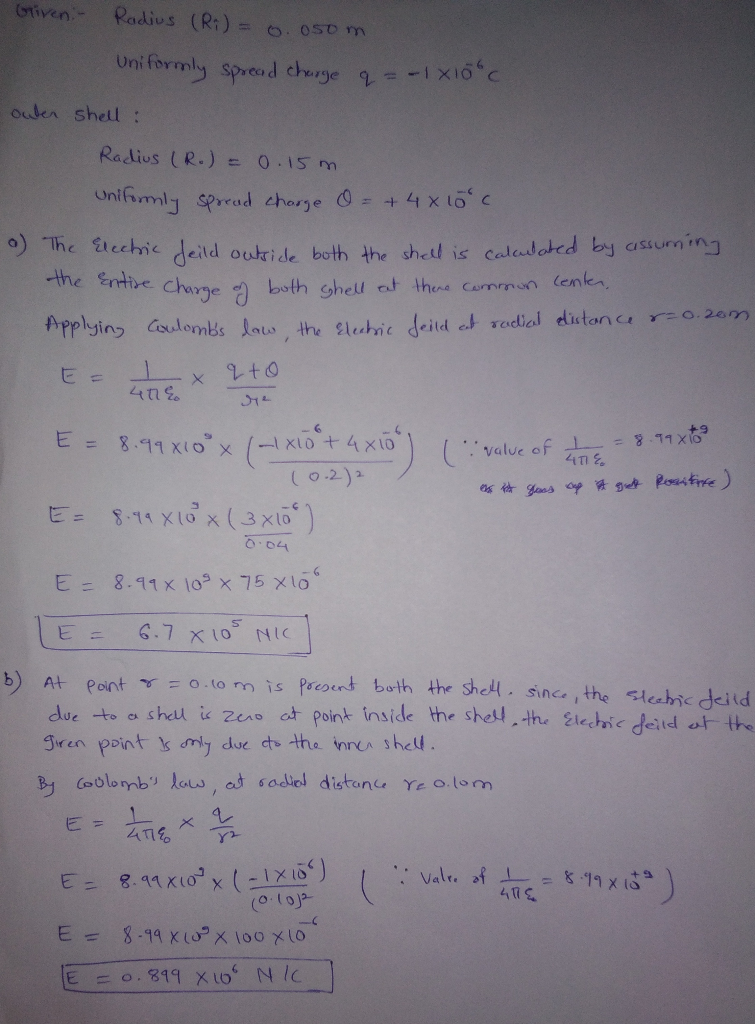 Given:- Radius (Ri) = 0.050 m
Uniformly spread charge q = -1 x 10⁻⁶ C
outer shell :
Radius (R.) = 0.15 m
Uniformly spread charge Q = + 4 x 10⁻⁶ C
a) The Electric feild outside both the shell is calculated by assuming
the Entire charge of both shell at there common center.
Applying Coulomb's law, the Electric feild at radial distance r=0.20m
E = 1/4πε₀ x q+Q/r²
E = 8.99 x 10⁹ x (-1 x 10⁻⁶ + 4 x 10⁻⁶/(0.2)²) (∵ value of 1/4πε₀ = 8.99 x 10⁺⁹
goes up)
E = 8.99 x 10⁹ x (3 x 10⁻⁶/0.04)
E = 8.99 x 10⁹ x 75 x 10⁻⁶
E = 6.7 x 10⁵ N/C
b) At point r = 0.10 m is present both the shell. since, the electric feild
due to a shell is zero at point inside the shell, the Electric feild at the
given point is only due to the inner shell.
By Coolomb's law, at radial distance r= 0.10m
E = 1/4πε₀ x q/r²
E = 8.99 x 10⁹ x (-1 x 10⁻⁶/(0.10)²) (∵ Value of 1/4πε₀ = 8.99 x 10⁺⁹)
E = 8.99 x 10⁹ x 100 x 10⁻⁶
E = 0.899 x 10⁶ N/C